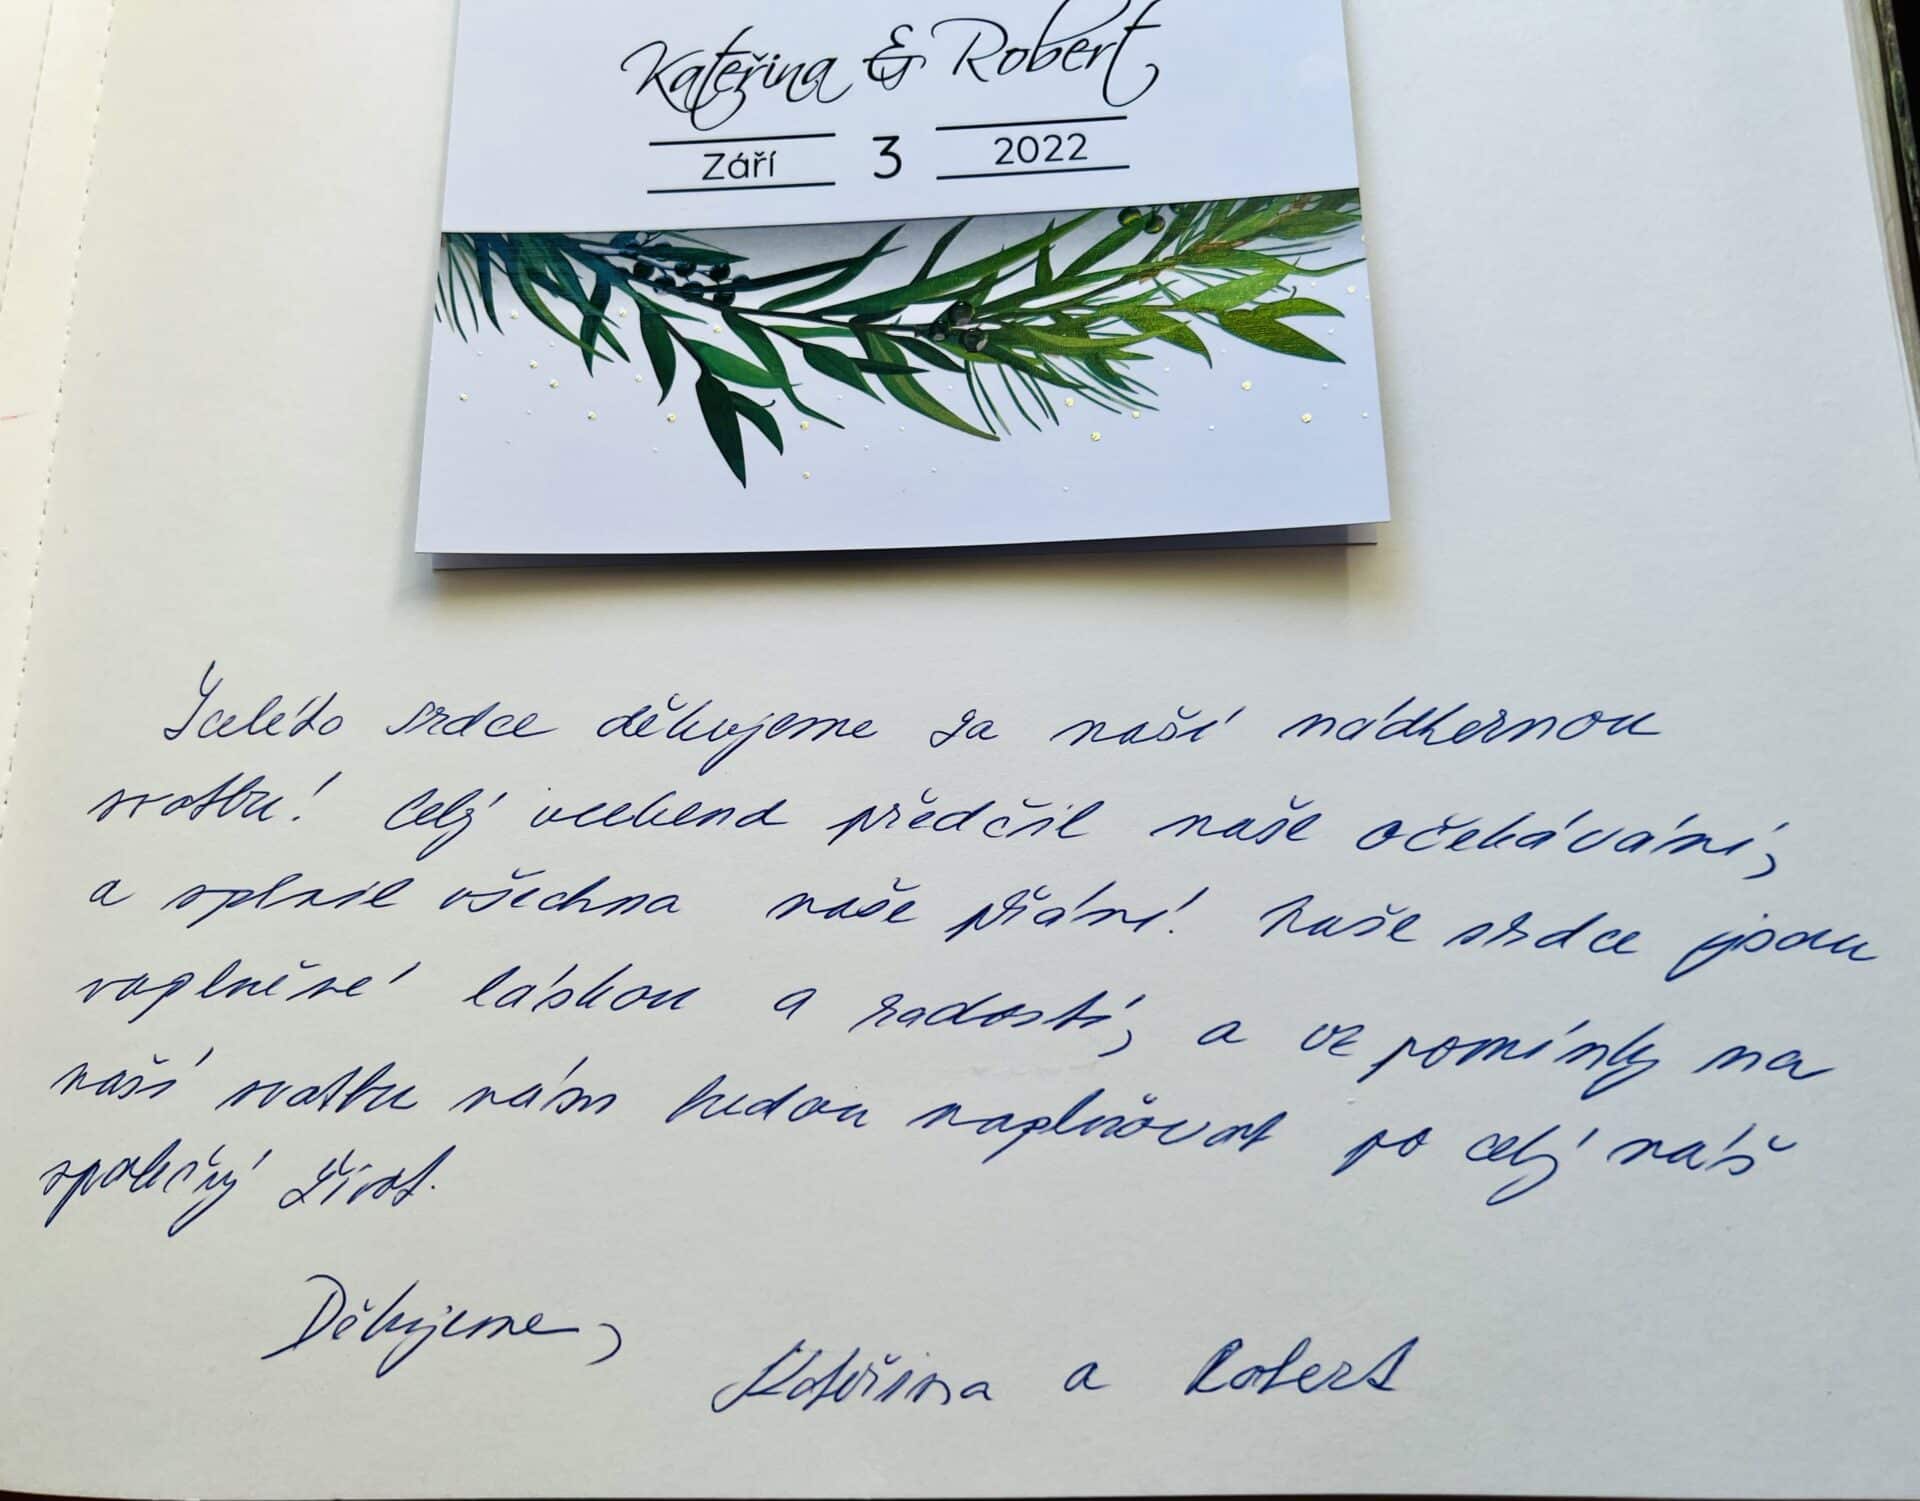 Kateřina & Robert
Září 3 2022
Z celého srdce děkujeme za naší nádhernou
svatbu! Celý víkend předčil naše očekávání,
a splnil všechna naše přání! Naše srdce jsou
naplněné láskou a radostí, a vzpomínky na
naší svatbu nám budou naplňovat po celý náš
společný život.
Děkujeme,
Kateřina a Robert